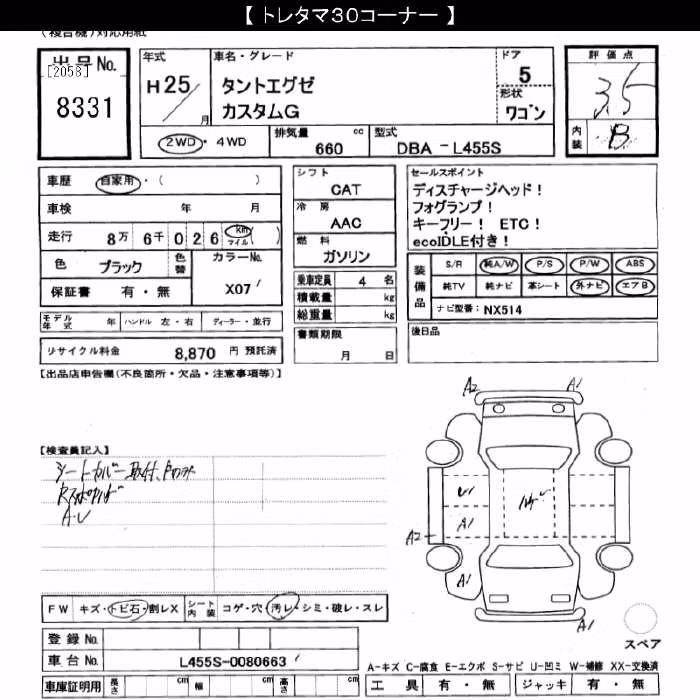 【トレタマ30コーナー】
(複合機)対応用紙
出品No.
[2058]
8331
年式
H25/月
車名・グレード
タントエグゼ
カスタムG
ドア
5
形状
ワゴン
評価点
3.5
内装
B
2WD・4WD
排気量 cc
660
型式
DBA-L455S
車歴 自家用・( )
車検 年 月
走行 8万 6千 0 2 6 km マイル ( )
色 ブラック 色替 カラーNo.
保証書 有・無 X07
モデル年式 年 ハンドル 左・右 ディーラー・並行
リサイクル料金 8,870 円 預託済
シフト
CAT
冷房
AAC
燃料
ガソリン
乗車定員 4 名
積載量 kg
総重量 kg
書類期限
月 日
セールスポイント
ディスチャージヘッド!
フォグランプ!
キーフリー! ETC!
ecoIDLE付き!
装備品
S/R 純A/W P/S P/W ABS
純TV 純ナビ 革シート 外ナビ エアB
ナビ型番: NX514
後日品
【出品店申告欄(不良箇所・欠品・注意事項等)】
【検査員記入】
シートカバー取付、
A・U
A2 A1
U1
A1
A2
A1
A1
FW キズ・トビ石・割レX シート内装 コゲ・穴・汚レ・シミ・破レ・スレ
登録No.
車台No. L455S-0080663
車庫証明用 長さ cm 幅 cm 高さ cm
スペア
A-キズ C-腐食 E-エクボ S-サビ U-凹ミ W-補修 XX-交換済
工具 有・無 ジャッキ 有・無